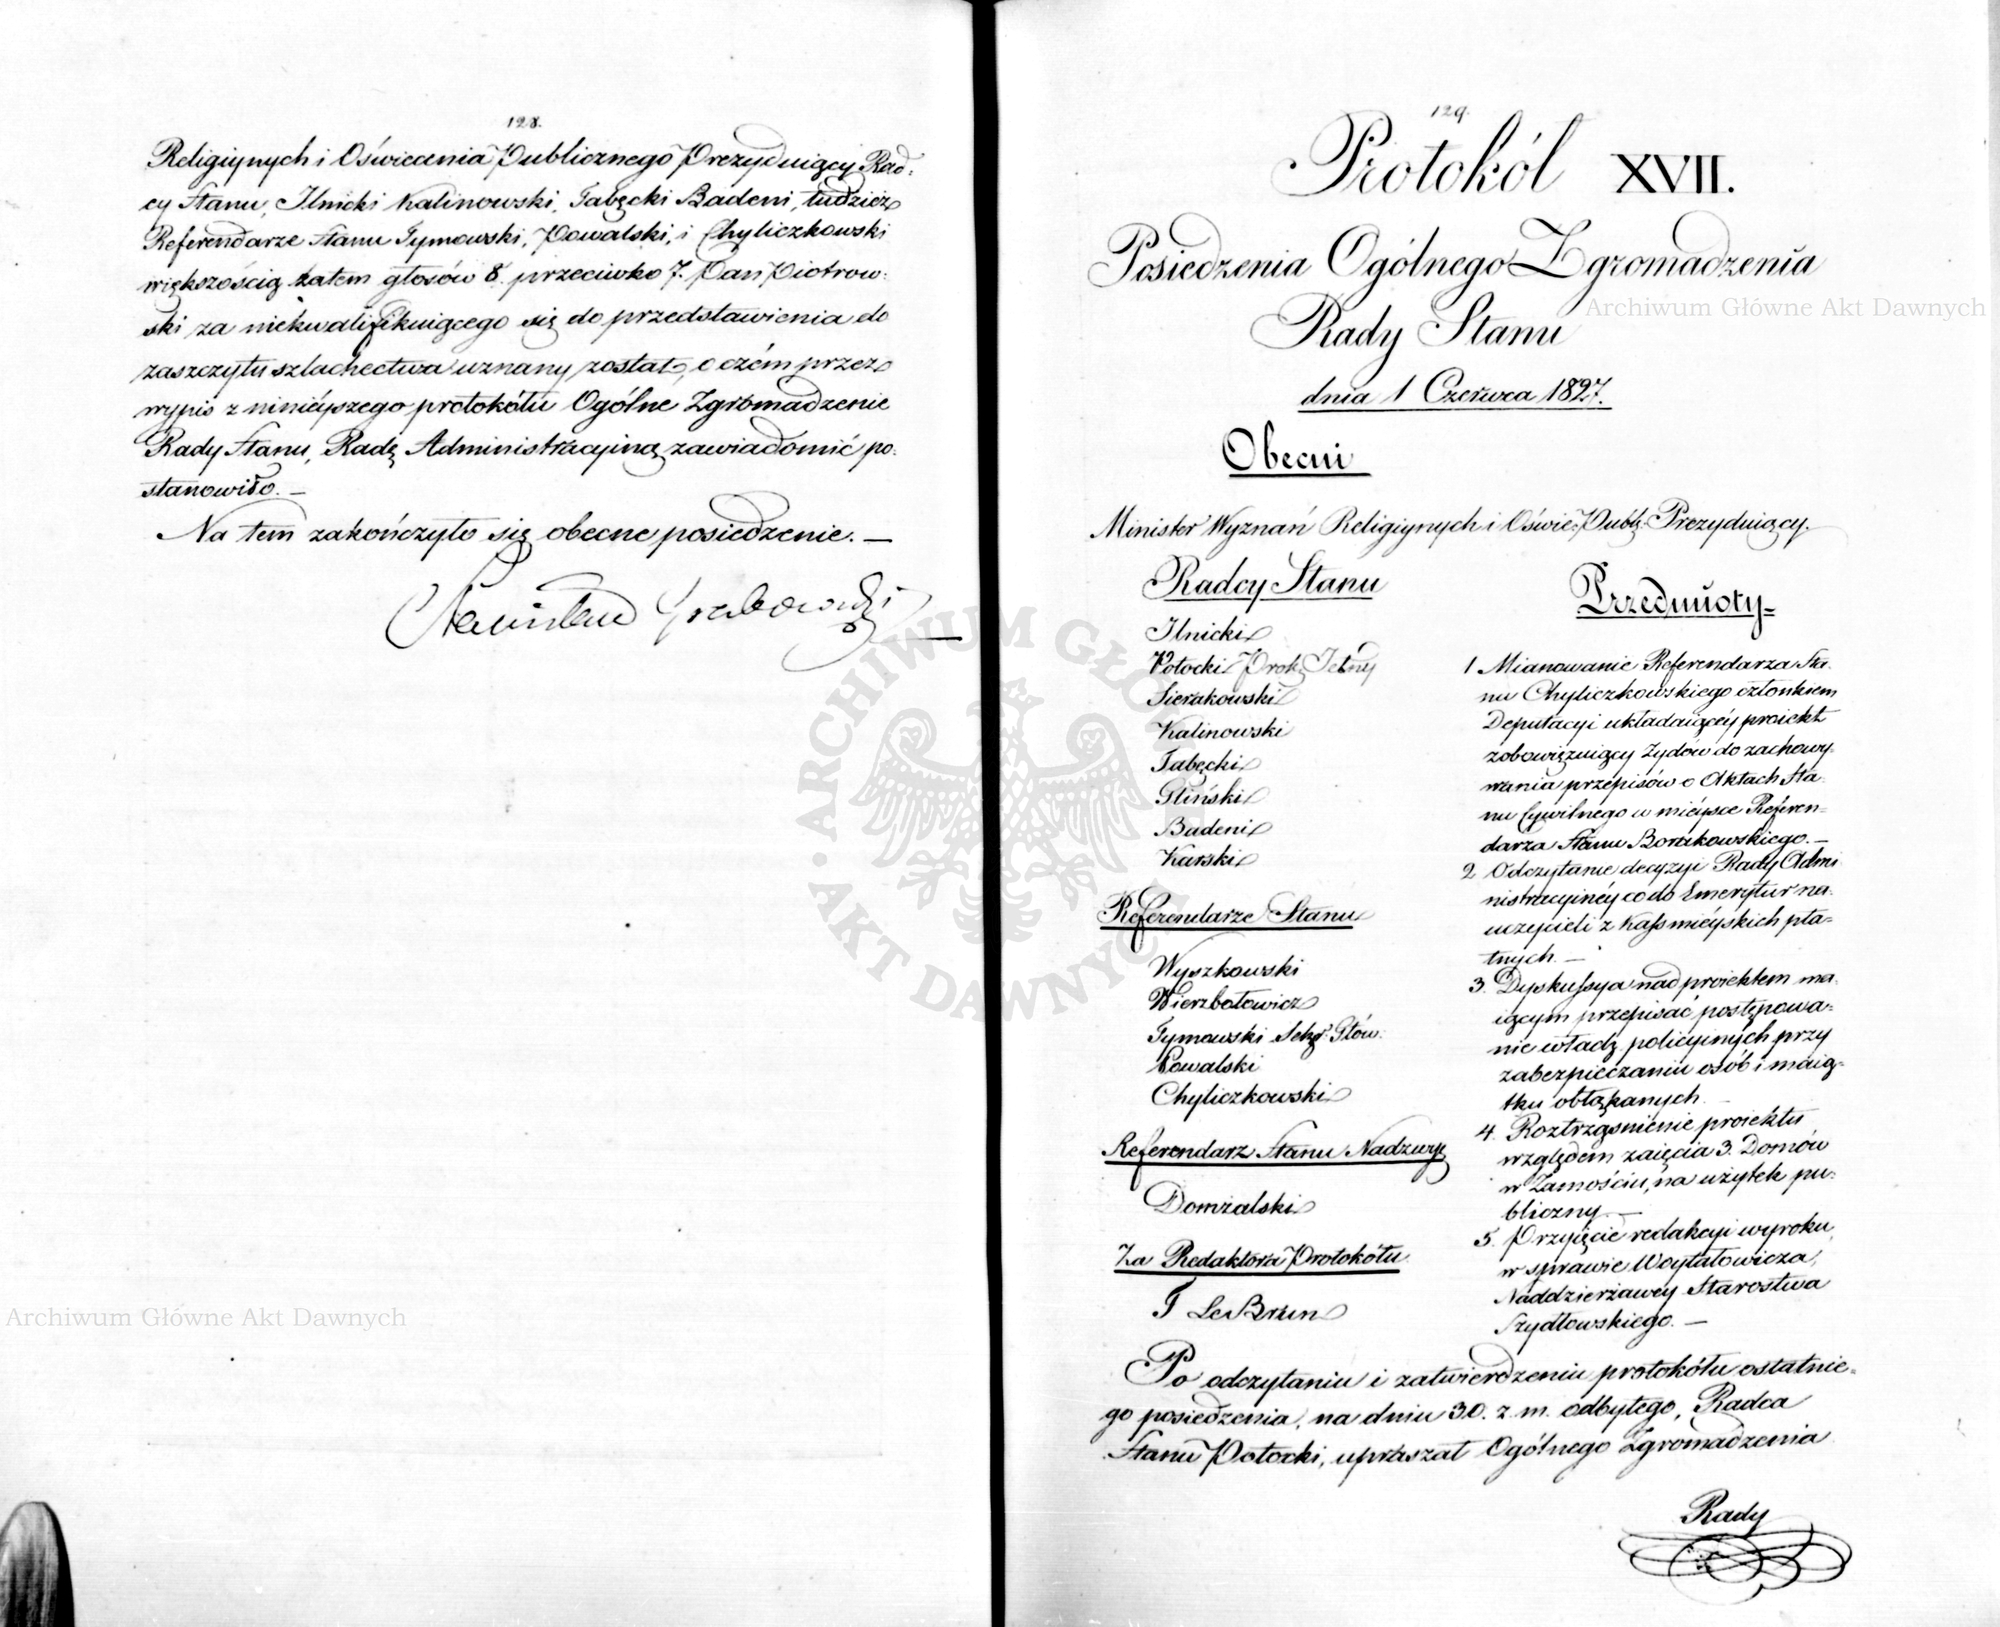 128.
Religiynych i Oświecenia Publicznego Prezyduiący Rad-
cy Stanu, Ilnicki Kalinowski, Tabęcki Badeni, tudzież
Referendarze Stanu Tymowski, Powalski, i Chyliczkowski
większością zatem głosów 8 przeciwko 7. Pan Piotrow-
ski za niekwalifikuiącego się do przedstawienia do
zaszczytu szlachectwa uznany został, o czém przez
wypis z ninieyszego protokółu Ogólne Zgromadzenie
Rady Stanu, Radę Administracyiną zawiadomić po-
stanowiło. —
Na tem zakończyło się obecne posiedzenie. —
Stanisław Grabowski
129.
Protokół XVII.
Posiedzenia Ogólnego Zgromadzenia
Rady Stanu
dnia 1 Czerwca 1827.
Obecni
Minister Wyznań Religiynych i Oświe: Publ: Prezyduiący.
Radcy Stanu
Ilnicki
Potocki Prok: Jelny
Sierakowski
Kalinowski
Tabęcki
Gliński
Badeni
Karski
Referendarze Stanu
Wyszkowski
Wierzbołowicz
Tymowski Sekr: Głów:
Powalski
Chyliczkowski
Referendarz Stanu Nadzwy:
Domżalski
Za Redaktora Protokółu
T LeBrun
Przedmioty
1 Mianowanie Referendarza Sta-
nu Chyliczkowskiego członkiem
Deputacyi układaiącéy proiekt
zobowięzuiący Żydów do zachowy-
wania przepisów o Aktach Sta-
nu Cywilnego w mieysce Referen-
darza Stanu Borakowskiego. —
2 Odczytanie decyzyi Rady Admi
nistracyinéy co do Emerytur na-
uczycieli z Kass mieyskich pła-
tnych. —
3. Dyskussya nad proiektem ma-
iącym przepisać postępowa-
nie władz policyinych przy
zabezpieczaniu osób i maią-
tku obłąkanych.
4. Roztrząśnienie proiektu
względem zaięcia 3. Domów
w Zamościu, na użytek pu-
bliczny —
5. Przyięcie redakcyi wyroku,
w sprawie Woytałowicza,
Naddzierżawcy Starostwa
Szydłowskiego. —
Po odczytaniu i zatwierdzeniu protokółu ostatnie-
go posiedzenia, na dniu 30. z. m. odbytego, Radca
Stanu Potocki, upraszał Ogólnego Zgromadzenia
Rady
Archiwum Główne Akt Dawnych
Archiwum Główne Akt Dawnych
ARCHIWUM GŁÓWNE AKT DAWNYCH